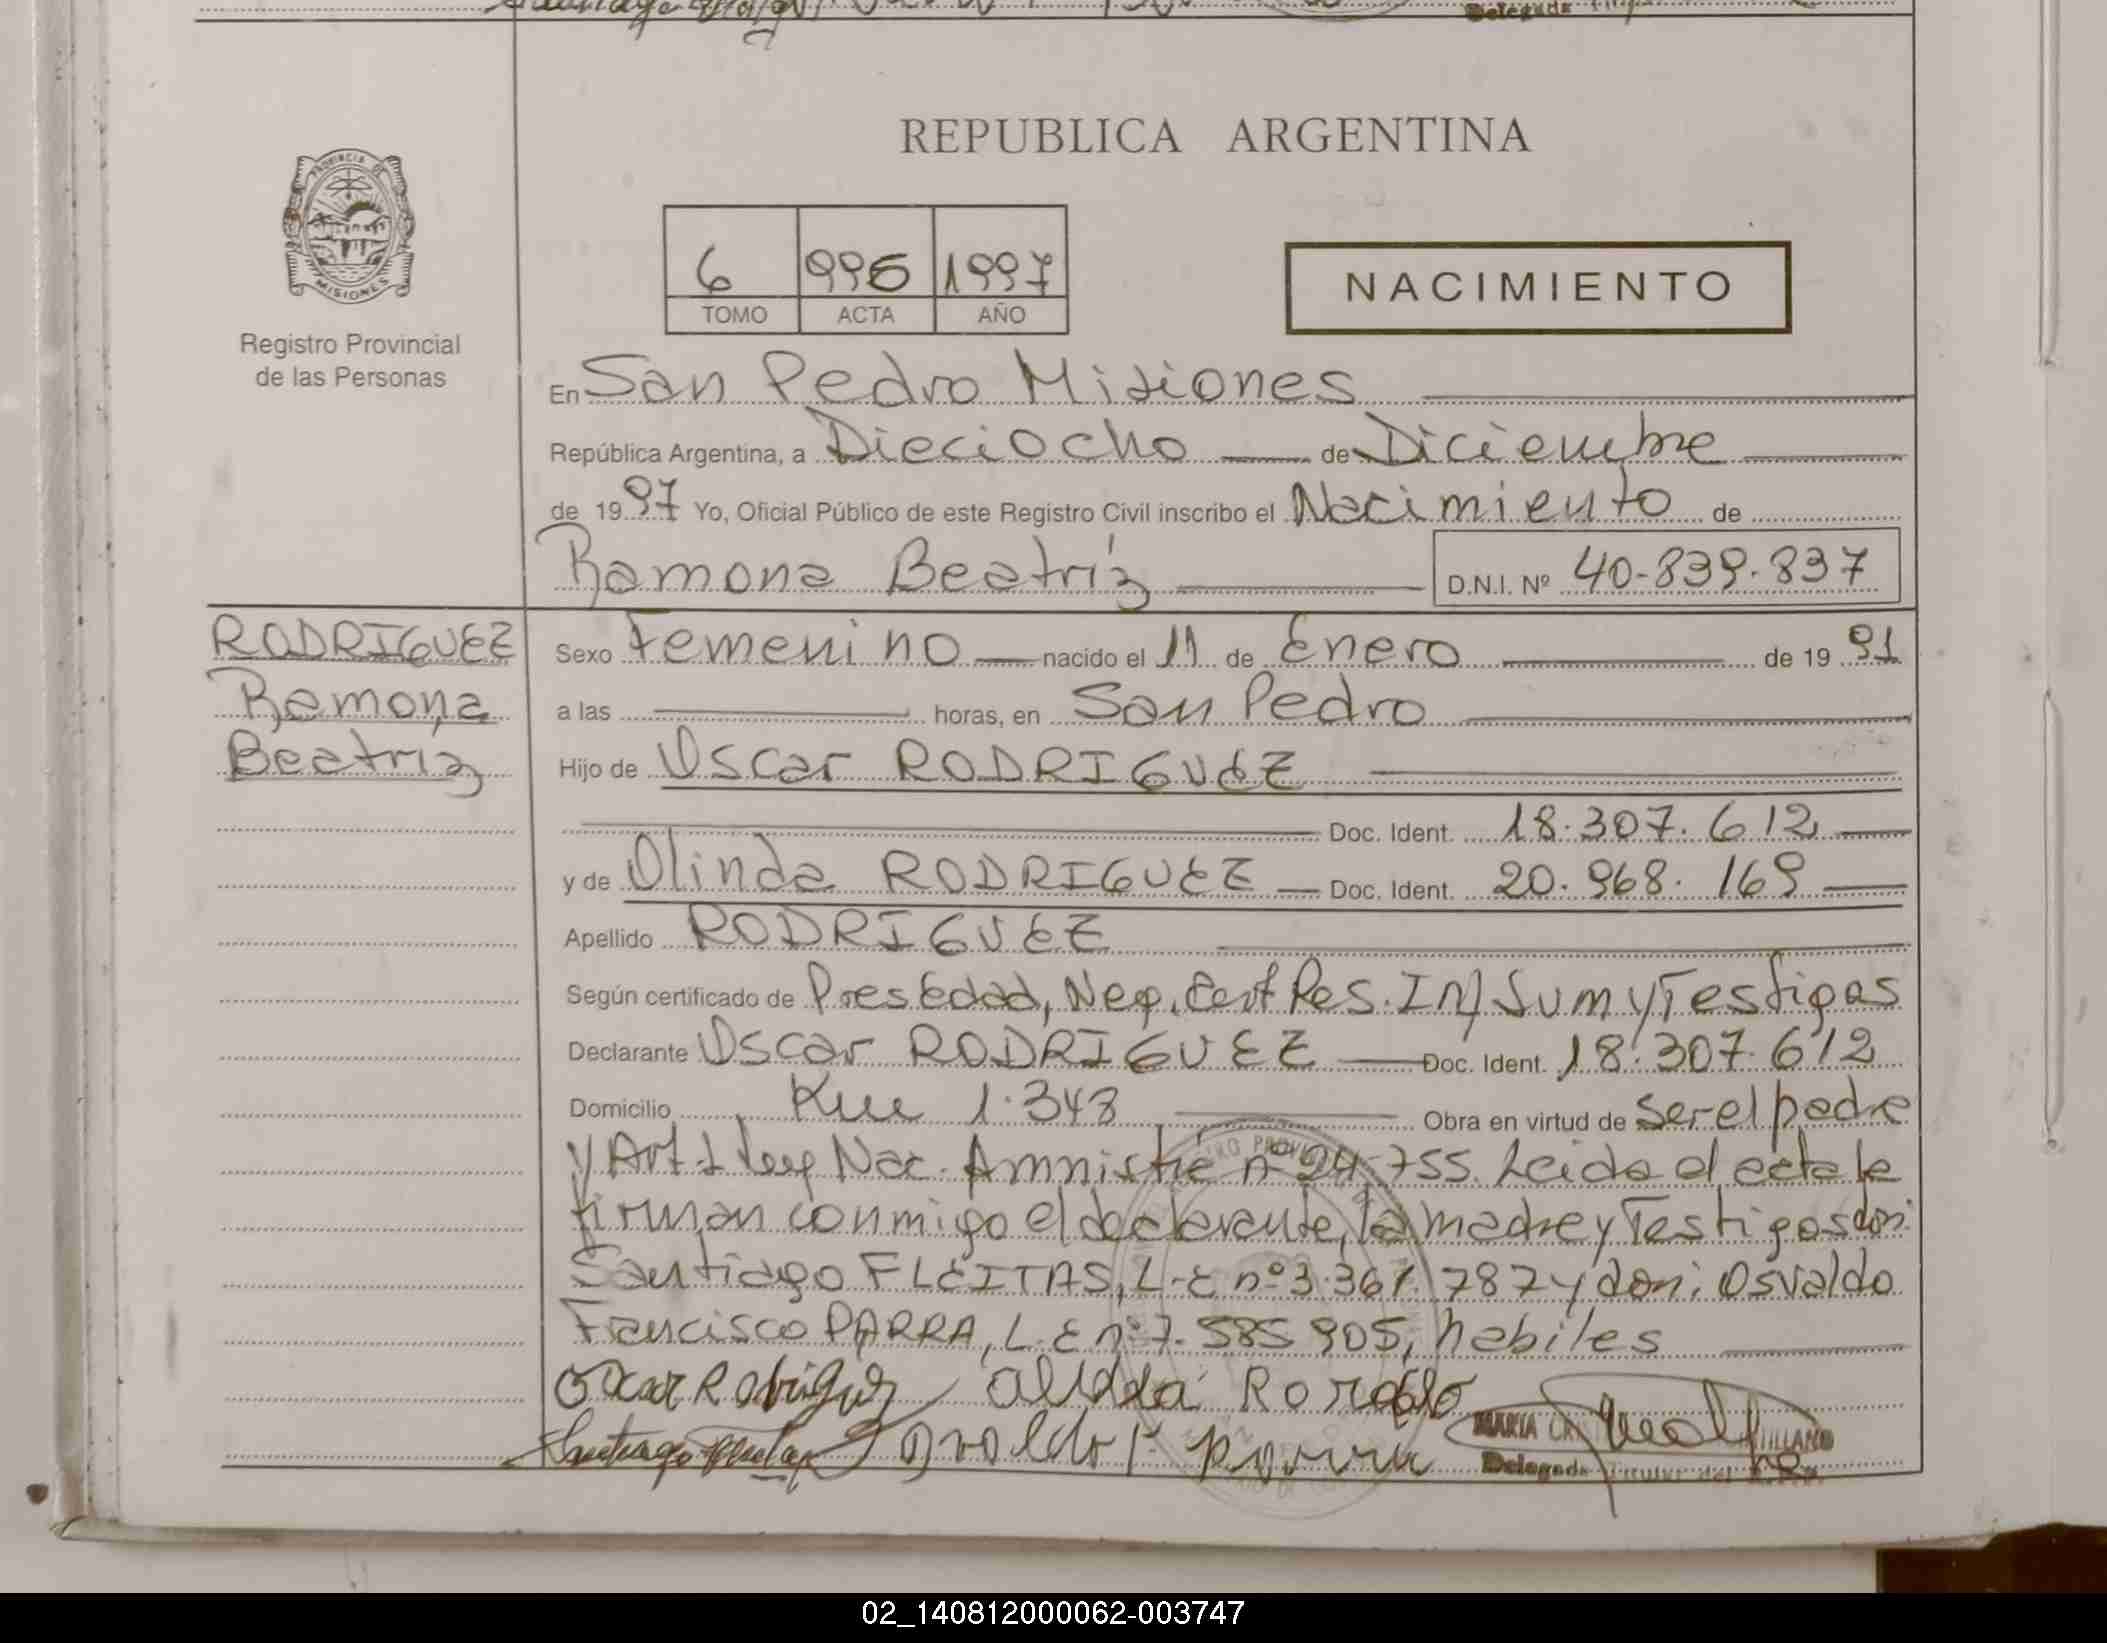 REPUBLICA ARGENTINA
PROVINCIA DE
MISIONES
Registro Provincial
de las Personas
6 996 1997
TOMO ACTA AÑO
NACIMIENTO
En San Pedro Misiones
República Argentina, a Dieciocho de Diciembre
de 1997 Yo, Oficial Público de este Registro Civil inscribo el Nacimiento de
Ramona Beatríz D.N.I. Nº 40-839-837
RODRIGUEZ
Ramona
Beatriz
Sexo Femenino nacido el 11 de Enero de 1991
a las horas, en San Pedro
Hijo de Oscar RODRIGUEZ
Doc. Ident. 18.307.612
y de Olinda RODRIGUEZ Doc. Ident. 20.968.169
Apellido RODRIGUEZ
Según certificado de Pres Edad, Neg. Cert Res. Inf Sum y Testigos
Declarante Oscar RODRIGUEZ Doc. Ident. 18.307.612
Domicilio Km 1.343 Obra en virtud de ser el padre
y Art 1 Ley Nac. Amnistia nº 24.755. Leida el acta la
firman conmigo el declarante, la madre y Testigos don:
Santiago FLEITAS, L.E nº 3.361.787 y don: Osvaldo
Francisco PARRA, L.E nº 7.585 905, habiles
Oscar Rodriguez
Santiago Osvaldo F. Parra
MARIA CRI
Delegada Titular del
02_140812000062-003747